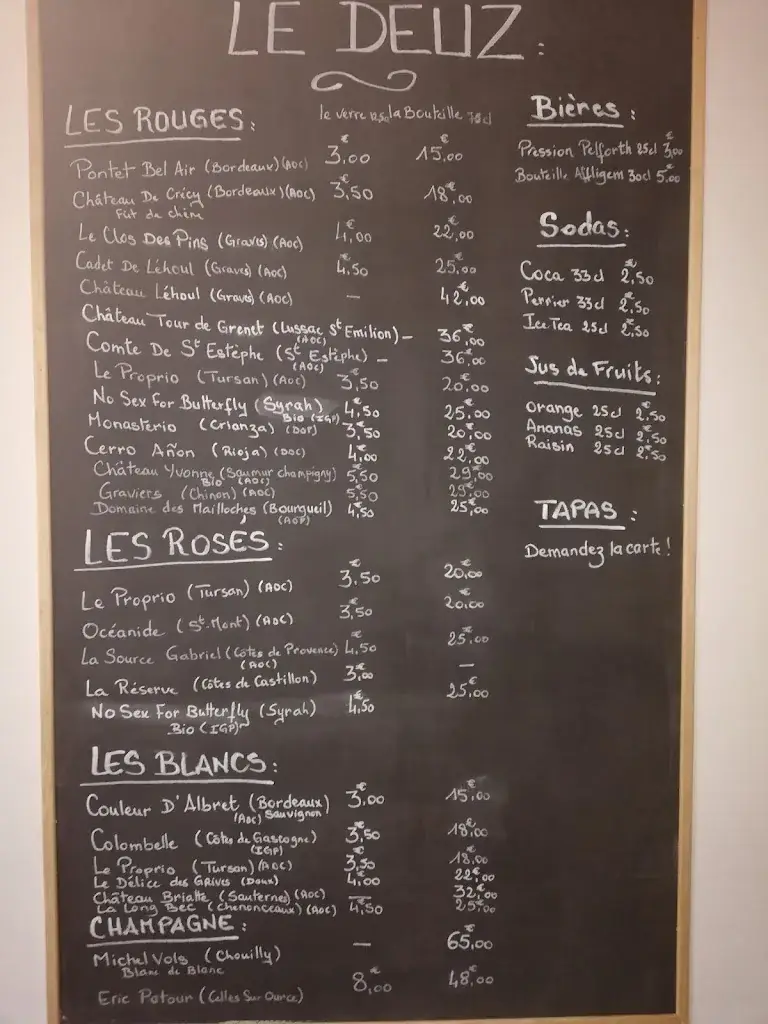 LE DEUZ :
LES ROUGES : le verre 12,5cl la Bouteille 75cl
Pontet Bel Air (Bordeaux) (AOC) 3,00€ 15,00€
Château De Crécy (Bordeaux) (AOC) 3,50€ 18,00€
Fût de chêne
Le Clos Des Pins (Graves) (AOC) 4,00€ 22,00€
Cadet De Léhoul (Graves) (AOC) 4,50€ 25,00€
Château Léhoul (Graves) (AOC) — 42,00€
Château Tour de Grenet (Lussac St Emilion) — 36,00€
(AOC)
Comte De St Estèphe (St Estèphe) — 36,00€
(AOC)
Le Proprio (Tursan) (AOC) 3,50€ 20,00€
No Sex For Butterfly (Syrah) 4,50€ 25,00€
Bio (IGP)
Monasterio (Crianza) (DOP) 3,50€ 20,00€
Cerro Añon (Rioja) (DOC) 4,00€ 22,00€
Château Yvonne (Saumur champigny) 5,50€ 29,00€
Bio (AOC)
Graviers (Chinon) (AOC) 5,50€ 29,00€
Domaine des Mailloches (Bourgueil) 4,50€ 25,00€
(AOP)
LES ROSÉS :
Le Proprio (Tursan) (AOC) 3,50€ 20,00€
Océanide (St-Mont) (AOC) 3,50€ 20,00€
La Source Gabriel (Côtes de Provence) 4,50€ 25,00€
(AOC)
La Réserve (Côtes de Castillon) 3,00€ —
No Sex For Butterfly (Syrah) 4,50€ 25,00€
Bio (IGP)
LES BLANCS :
Couleur D'Albret (Bordeaux) 3,00€ 15,00€
(AOC) Sauvignon
Colombelle (Côtes de Gascogne) 3,50€ 18,00€
(IGP)
Le Proprio (Tursan) (AOC) 3,50€ 18,00€
Le Délice des Grives (Doux) 4,00€ 22,00€
Château Brialte (Sauternes) (AOC) — 32,00€
La Long Bec (Chenonceaux) (AOC) 4,50€ 25,00€
CHAMPAGNE :
Michel Vols (Chouilly) — 65,00€
Blanc de Blanc
Eric Patour (Celles Sur Ource) 8,00€ 48,00€
Bières :
Pression Pelforth 25cl 3,00€
Bouteille Affligem 30cl 5,00€
Sodas :
Coca 33cl 2,50€
Perrier 33cl 2,50€
Ice Tea 25cl 2,50€
Jus de Fruits :
Orange 25cl 2,50€
Ananas 25cl 2,50€
Raisin 25cl 2,50€
TAPAS :
Demandez la carte !